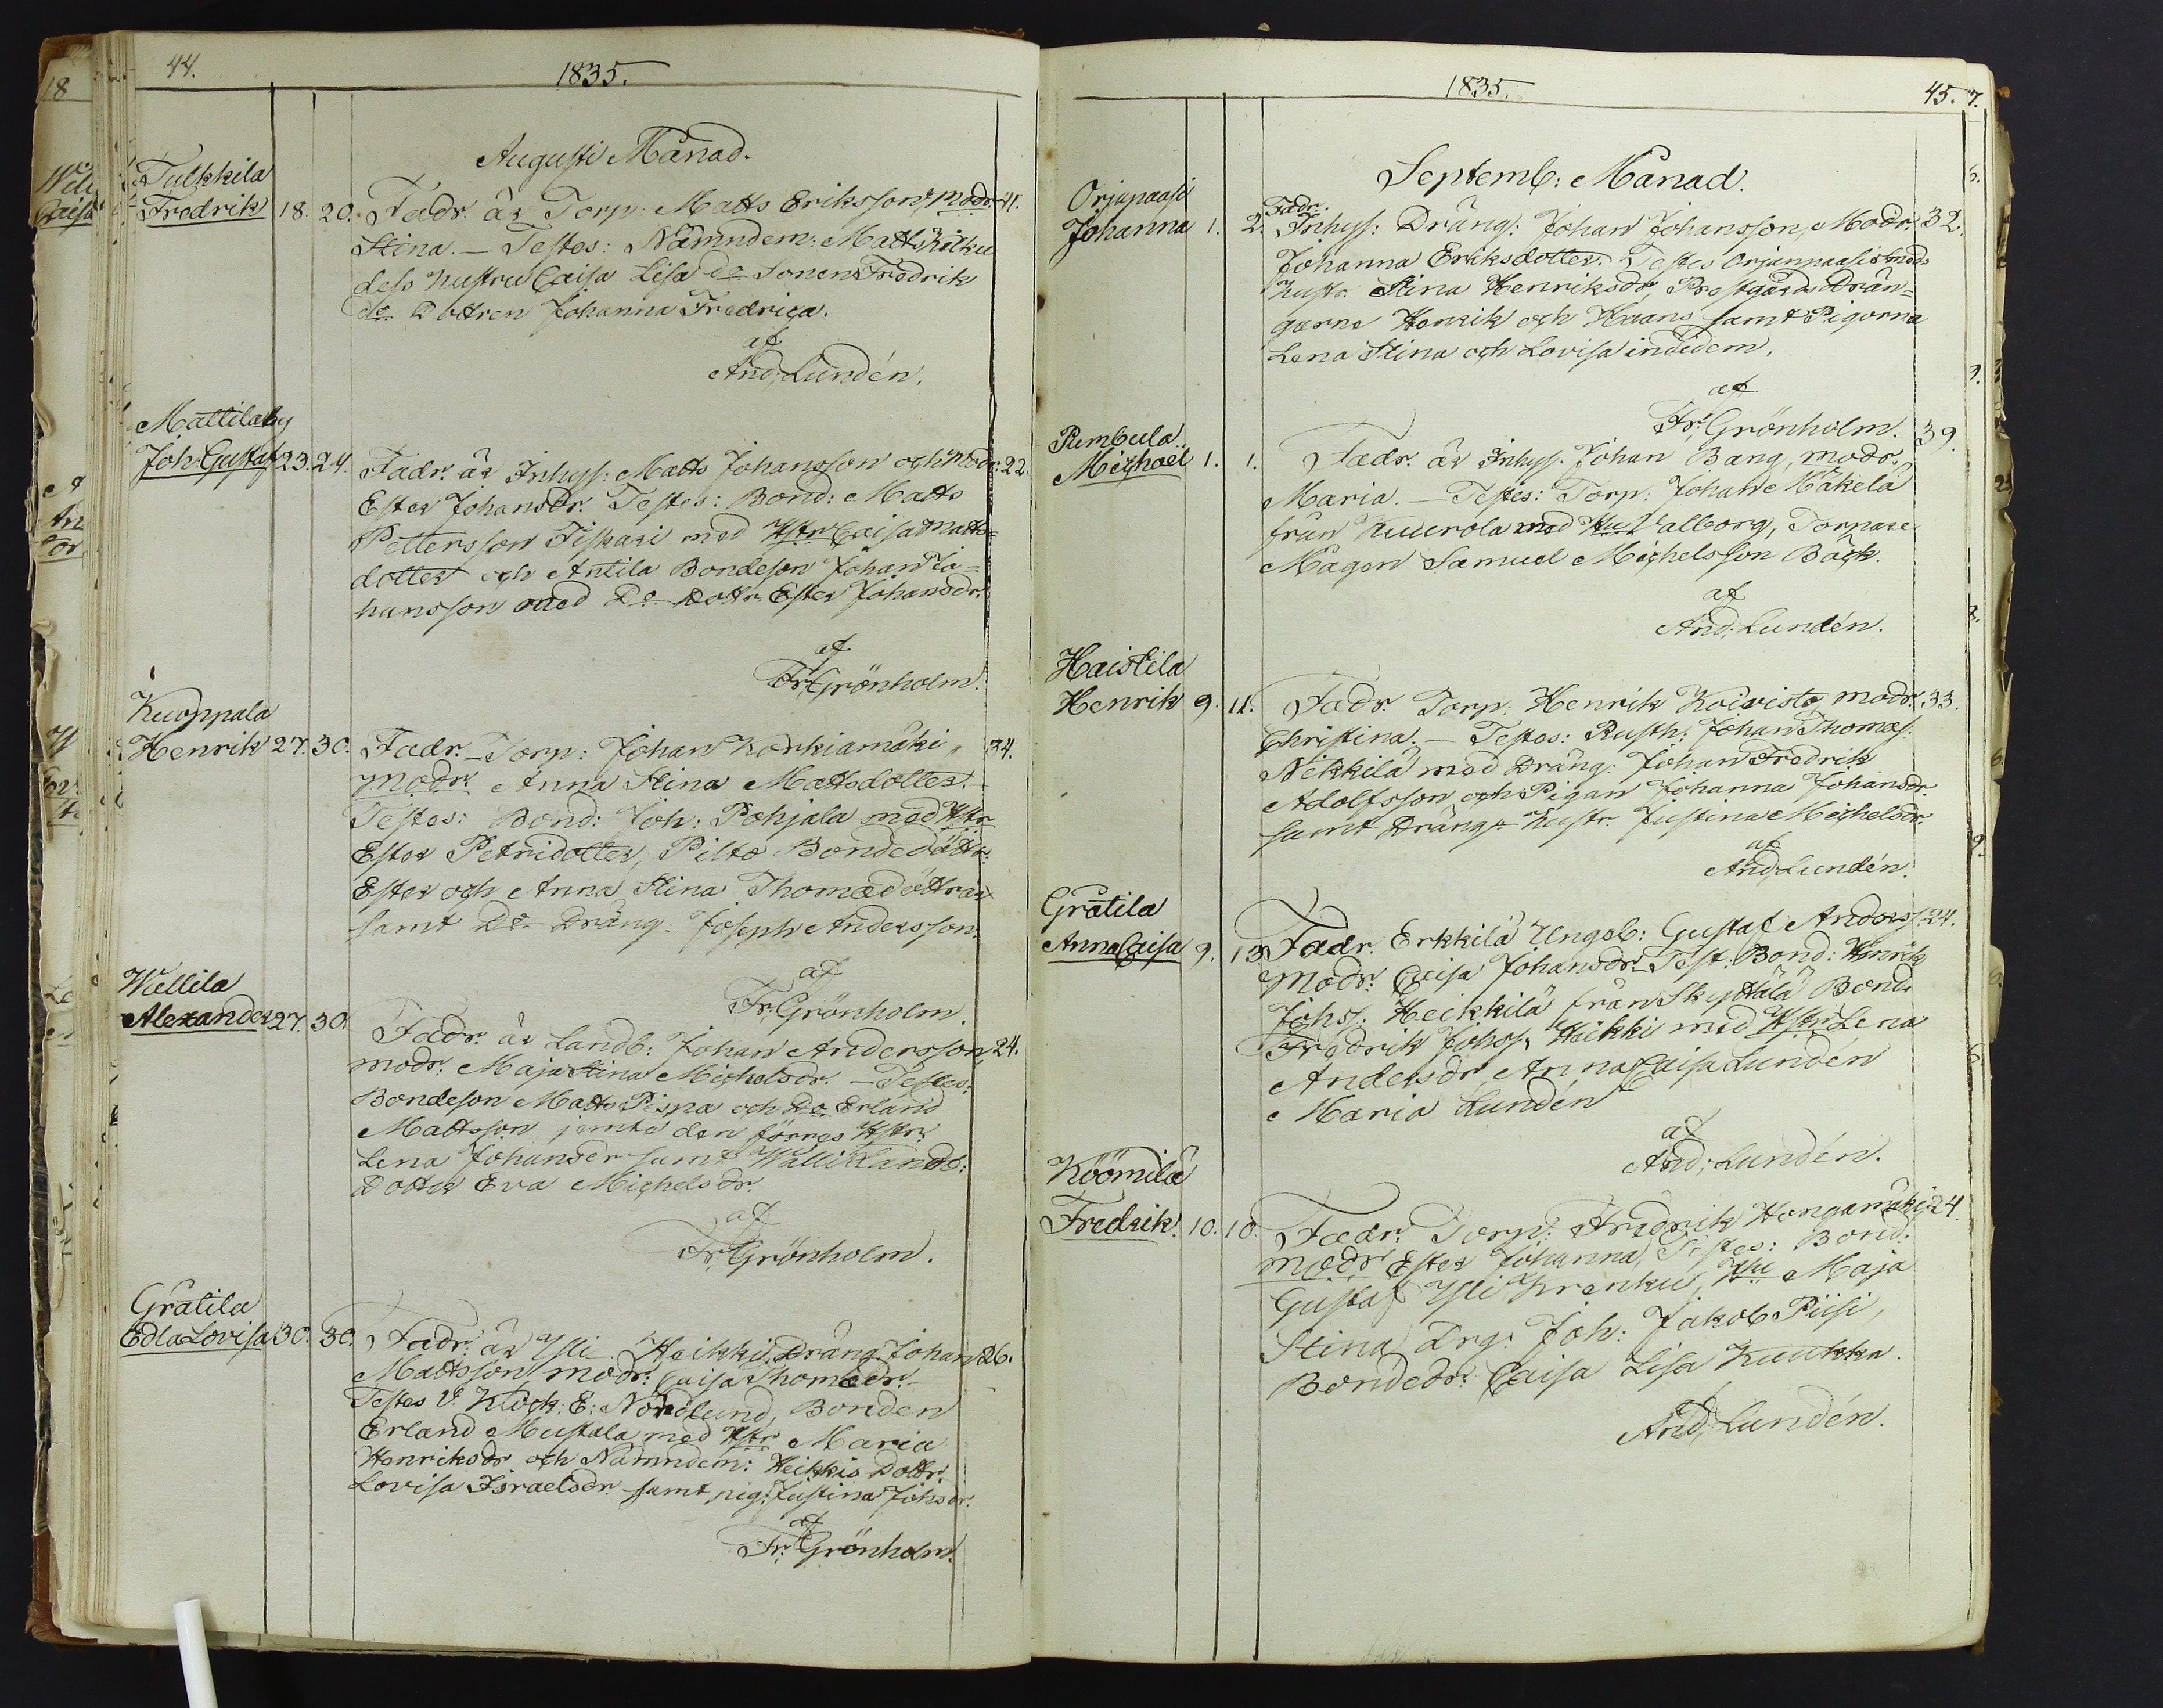 44.
1835.
Augusti Månad.
Tulkkila
Fredrik 18. 20. Fadr. är Torp: Matts Eriksson, modr. 41.
Stina. — Testes: Nämndem: Matts Kilku
dess hustru Caisa Lisa do Sonen Fredrik
do Dottren Johanna Fredrica.
af
And; Lundén.
Mattilaby
Joh: Gustaf 23. 24. Fadr. är Inhys: Matts Johansson och Modr. 22.
Ester Johansdr. Testes: Bond: Matts
Pettersson Tiskari med Hstr Caisa Matts=
dotter och Antila Bondeson Johan Jo=
hansson med Do Dottr. Ester Johansdr.
af
Fr; Grönholm.
Kuoppala
Henrik 27. 30. Fadr. Torp: Johan Korkiamäki, 34.
Modr. Anna Stina Mattsdotter.
Testes: Bond: Joh: Pohjala med Hstr
Ester Petridotter, Pilto Bondedöttr.
Ester och Anna Stina Thomædöttrar
samt Do Dräng: Joseph Andersson.
af
Fr; Grönholm.
Wellila
Alexander 27. 30. Fadr. är Landb: Johan Andersson, 24.
modr. Maja Stina Michelsdr. — Testes:
Bondeson Matts Pispa och Do Erland
Mattsson jemte den förres Hstr.
Lena Johansdr samt Landb:
Dotter Eva Michelsdr.
af
Fr; Grönholm.
Gratila
Edla Lovisa 30. 30. Fadr. är Yli Heikki Dräng: Johan 26.
Mattsson, modr: Caisa Thomædr.
Testes V. Klock: E: Nordlund, Bonden
Erland Mustala med Hstr Maria
Henriksdr och Nämndem: Heikkis Dottr.
Lovisa Israelsdr samt pig: Justina Johsdr.
af
Fr; Grönholm.
1835.
45.
Septemb: Månad.
Orjapaasi
Johanna 1. 2. Fadr. Inhys: Dräng: Johan Johansson, Modr. 32.
Johanna Eriksdotter. Testes Orjanpaasi
hustr. Stina Henriksdr, Prestgårds Drän=
garne Henrik och Haans samt Pigorna
Lena Stina och Lovisa indidem.
af
Fr; Grönholm.
Pumbula
Michaël 1. 1. Fadr. är Inhys. Johan Bang, modr. 39.
Maria. — Testes: Torp: Johan Mäkelä
från Kuurola med Hu Valborg, Torpare
Magen Samuel Michelsson Bäck.
af
And; Lundén.
Haistila
Henrik 9. 11. Fadr. Torp: Henrik Koivisto, modr. 33.
Christina. — Testes: Rusth: Johan Thomas:
Nikkilä med Dräng: Johan Fredrik
Adolfsson och Pigan Johanna Johansdr.
samt Drängs hustr. Justina Michelsdr.
af
And; Lundén.
Gratila
Anna Caisa 9. 13. Fadr. Erkkilä Ungsb: Gustaf Anderss. 24.
Modr: Caisa Johansdr. Test: Bond: Henrik
Johss. Heikkilä från Skyttälä Bond.
Fredrik Johss. Heikki med Hstr Lena
Andersdr, Anna Caisa Lundén
Maria Lundén
af
And; Lundén.
Köömilä
Fredrik. 10. 10. Fadr. Torp: Fredrik Hongamäki 24.
modr Ester Johanna, Testes: Bond.
Gustaf Yli Krenku, Hu Maja
Stina, Drg: Joh: Jakob Piisi,
Bondedr: Caisa Lisa Kuukka.
af
And; Lundén.